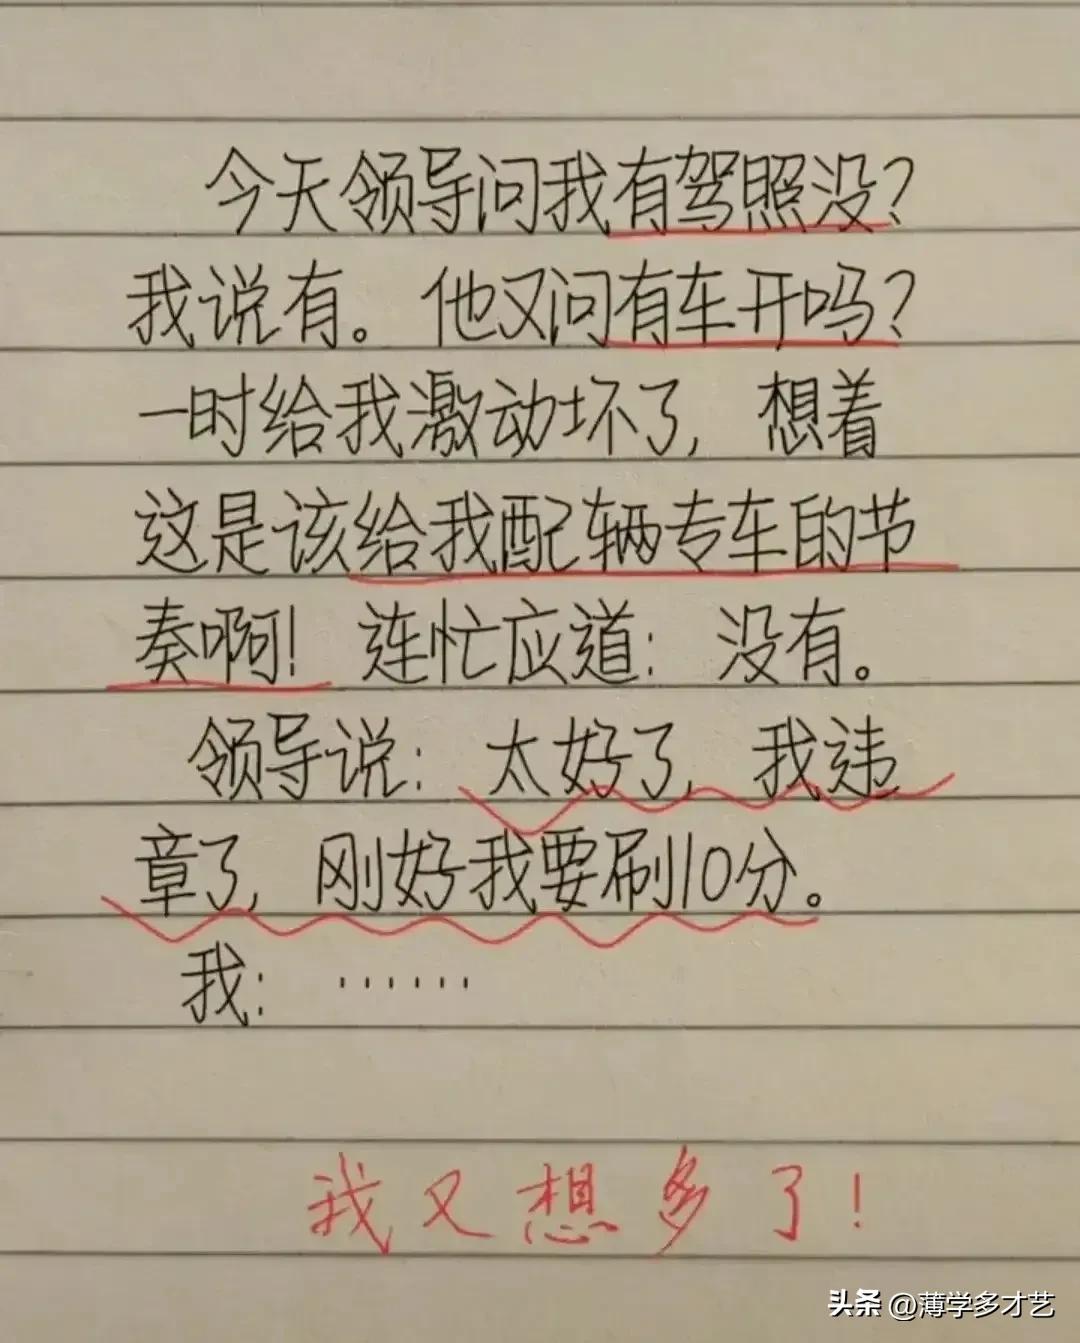 今天领导问我有驾照没?
我说有。他又问有车开吗?
一时给我激动坏了,想着
这是该给我配辆专车的节
奏啊!连忙应道:没有。
领导说:太好了,我违
章了,刚好我要刷10分。
我:······
我又想多了!
头条 @薄学多才艺